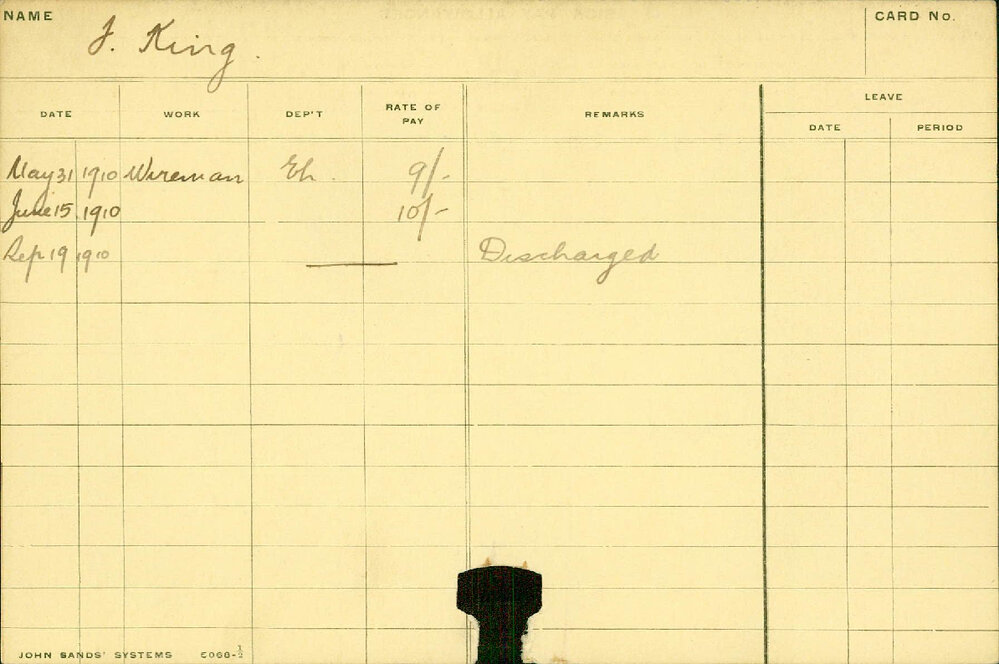 NAME
J. King.
CARD No.
DATE WORK DEP'T RATE OF PAY REMARKS LEAVE
DATE PERIOD
May 31 1910 Wireman 9/-
June 15 1910 10/-
Sep 19 1910 Discharged
JOHN SANDS' SYSTEMS